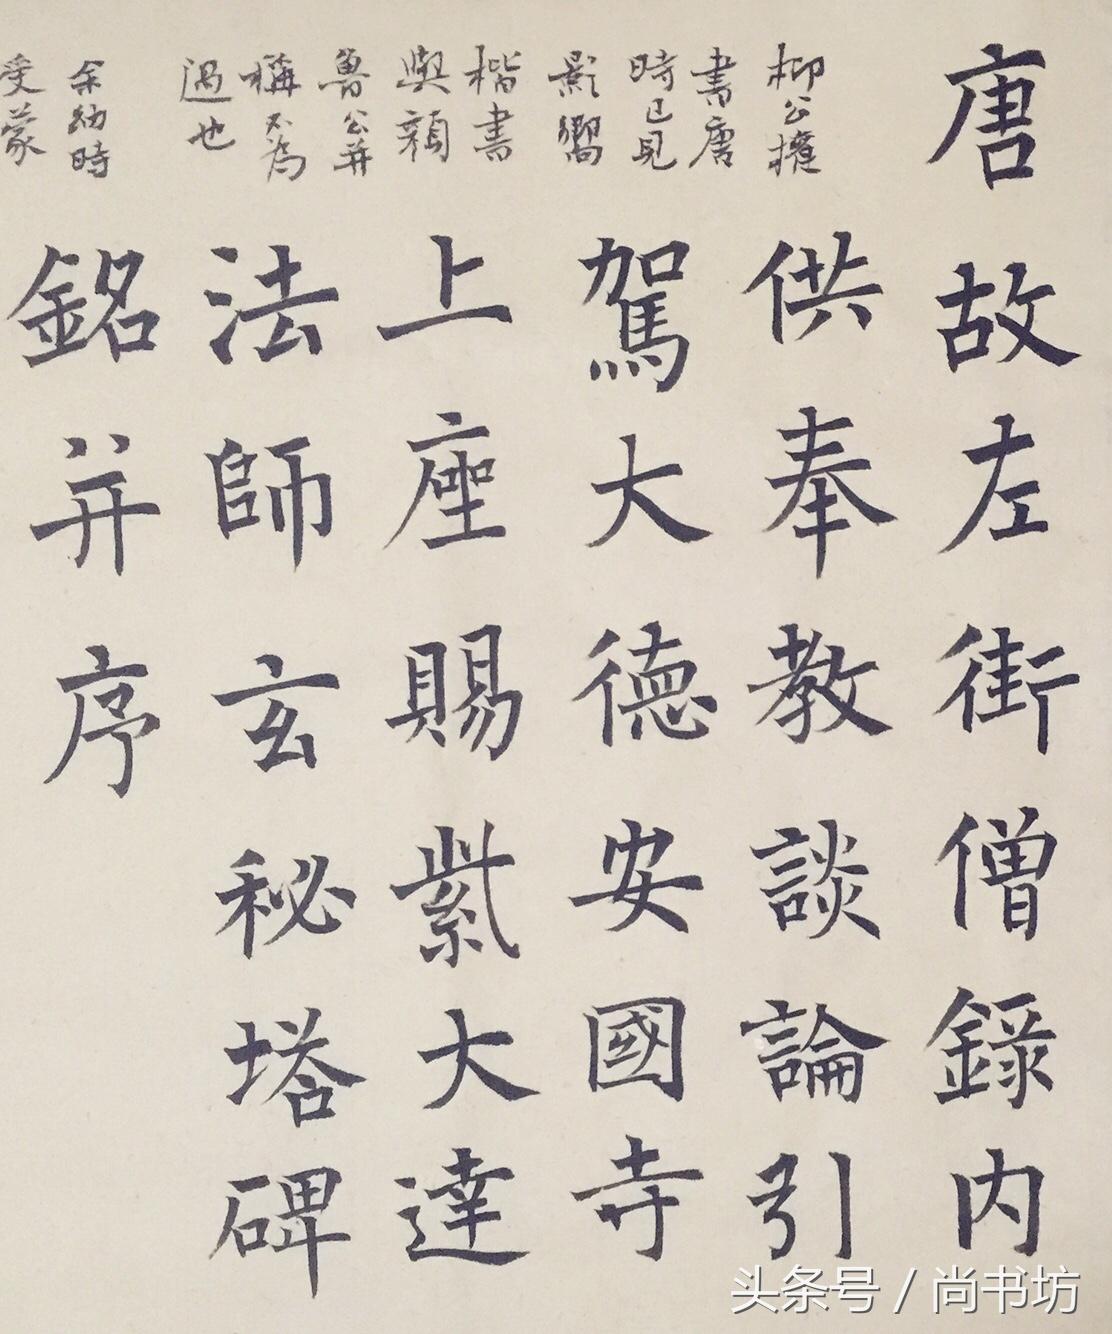 唐故左街僧錄内
供奉教談論引
駕大德安國寺
上座賜紫大達
法師玄秘塔碑
銘并序
柳公
書唐
時已見
影響
楷書
與顏
魯公并
稱不為
過也
余幼時
受蒙
头条号 / 尚书坊